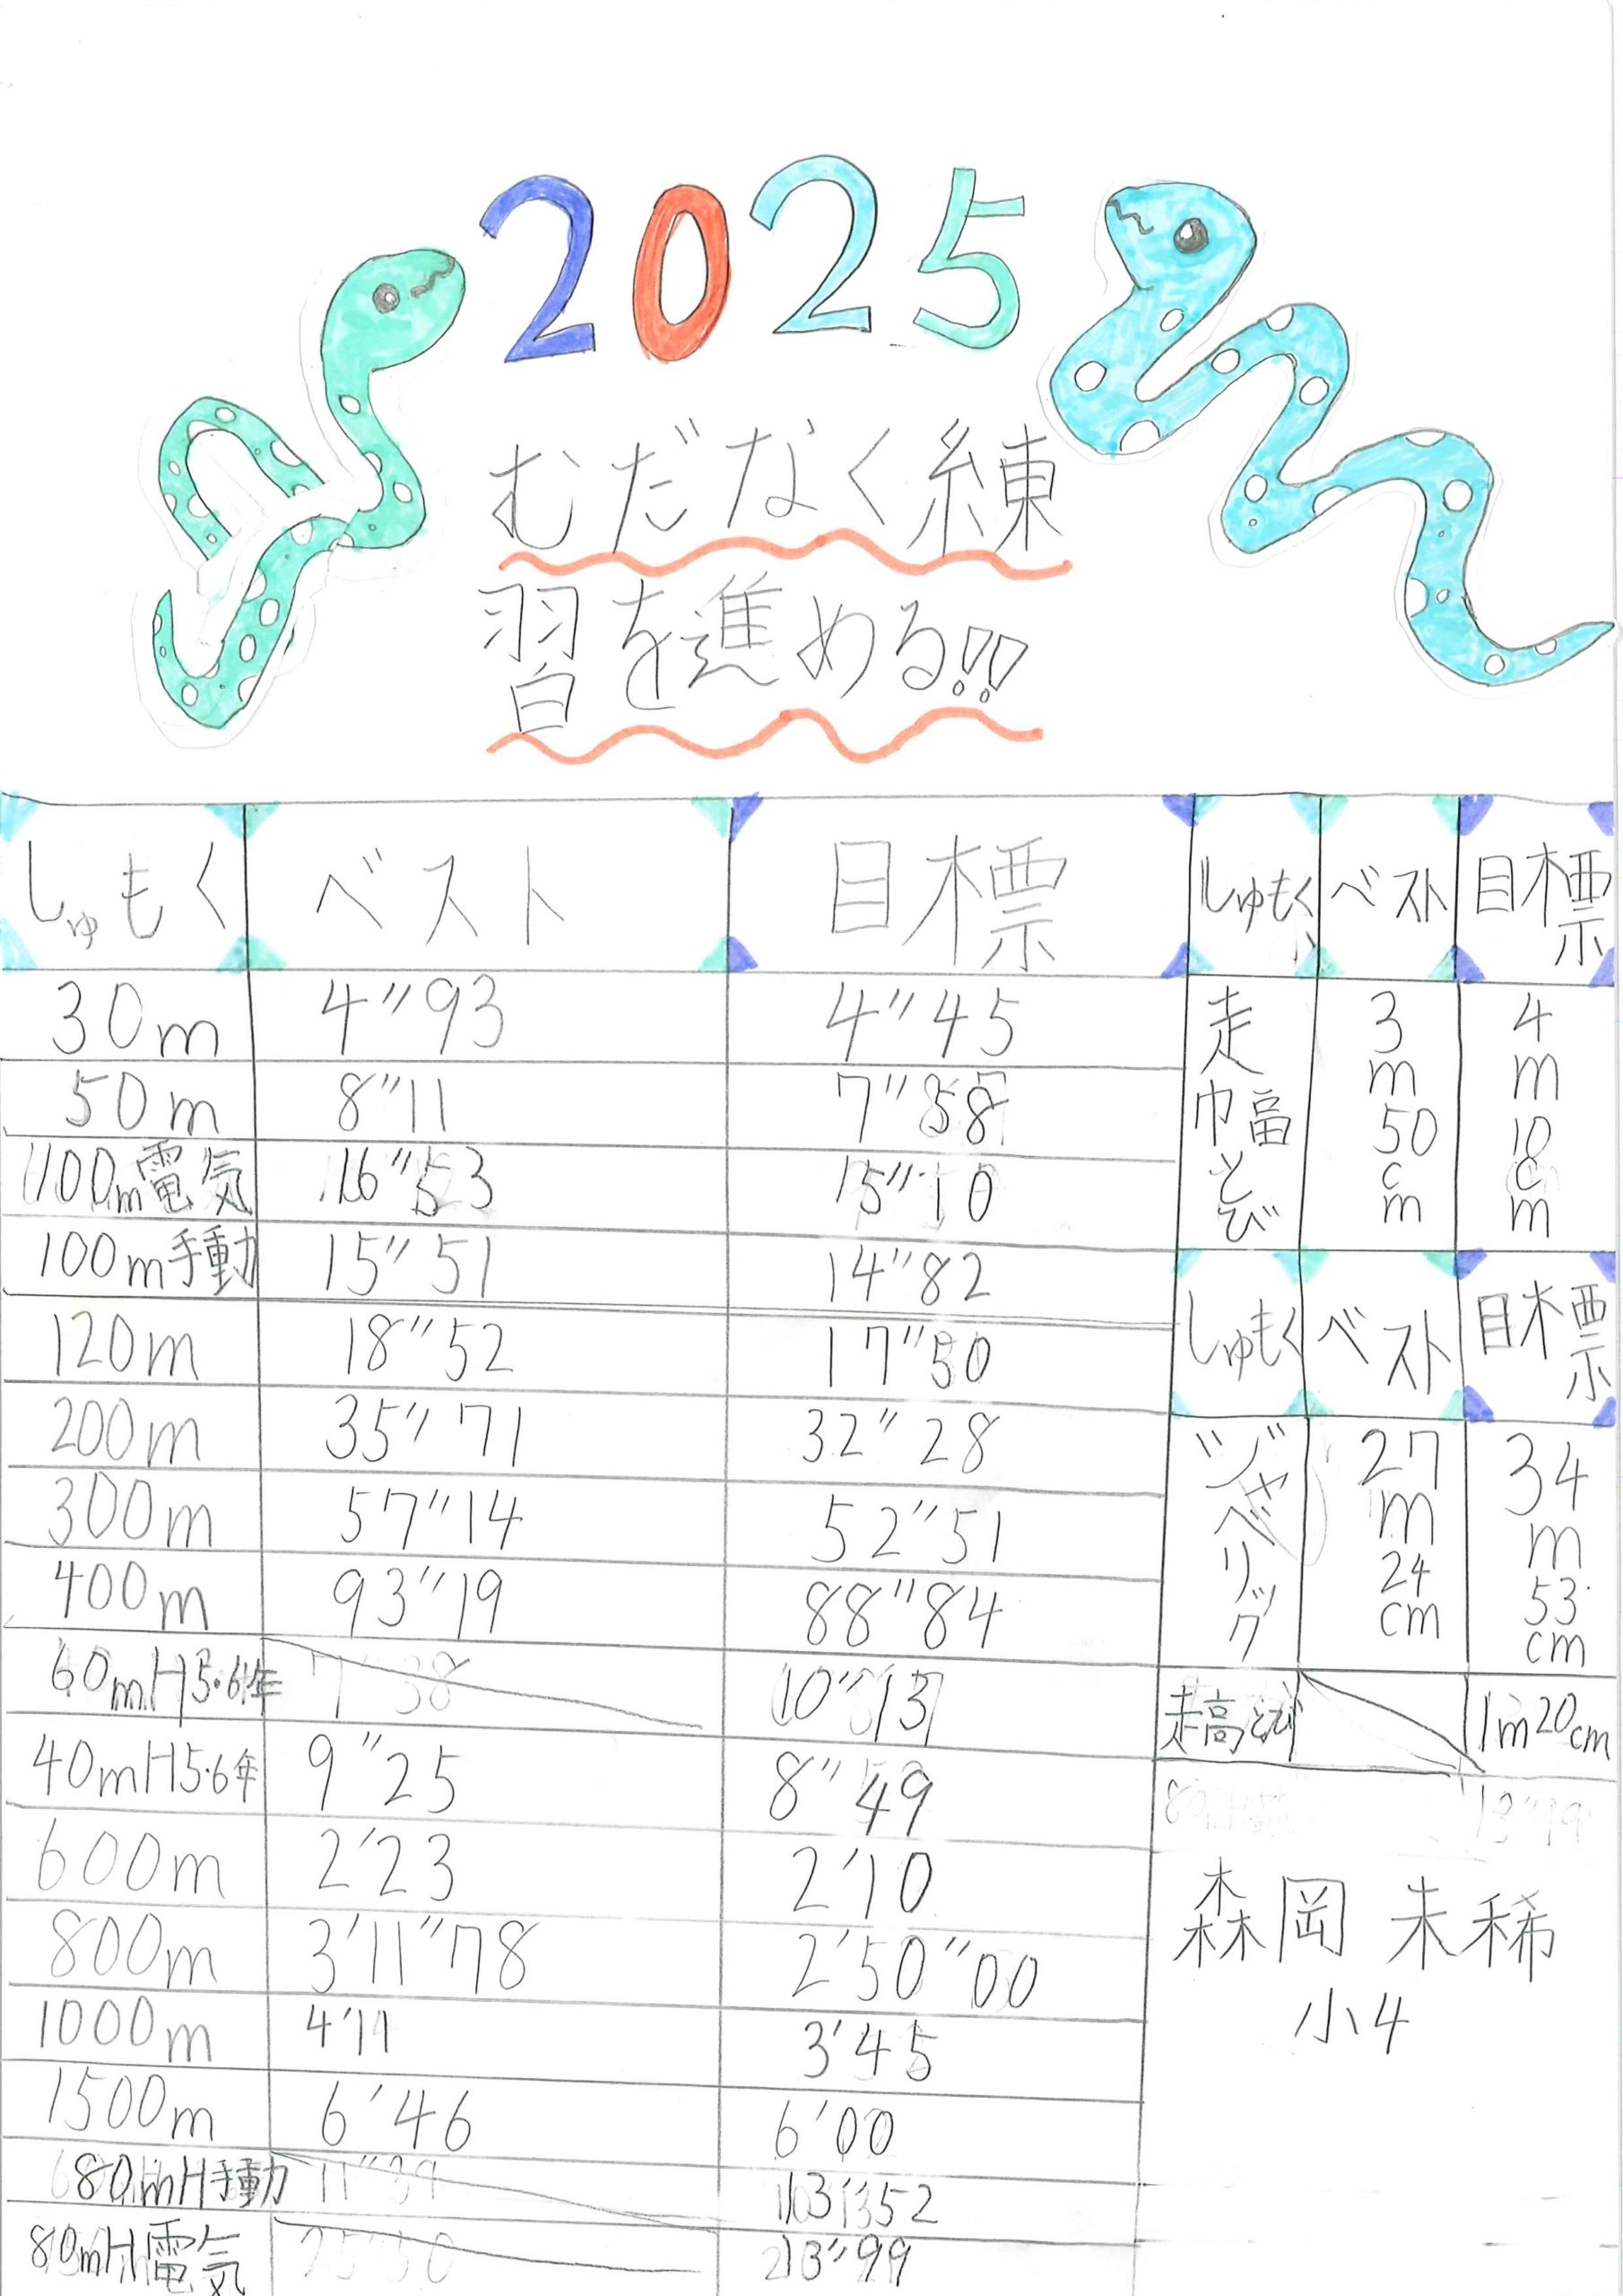 2025
むだなく練
習を進める!!
しゅもく ベスト 目標
30m 4"93 4"45
50m 8"11 7"58
100m電気 16"53 15"10
100m手動 15"51 14"82
120m 18"52 17"50
200m 35"71 32"28
300m 57"14 52"51
400m 93"19 88"84
60mH5・6年 10"13
40mH5・6年 9"25 8"49
600m 2'23 2'10
800m 3'11"78 2'50"00
1000m 4'11 3'45
1500m 6'46 6'00
80mH手動 13"52
80mH電気 13"99
しゅもく ベスト 目標
走幅とび 3m50cm 4m10cm
しゅもく ベスト 目標
ジャベリック 27m24cm 34m53cm
走高とび 1m20cm
森岡 未稀
小4